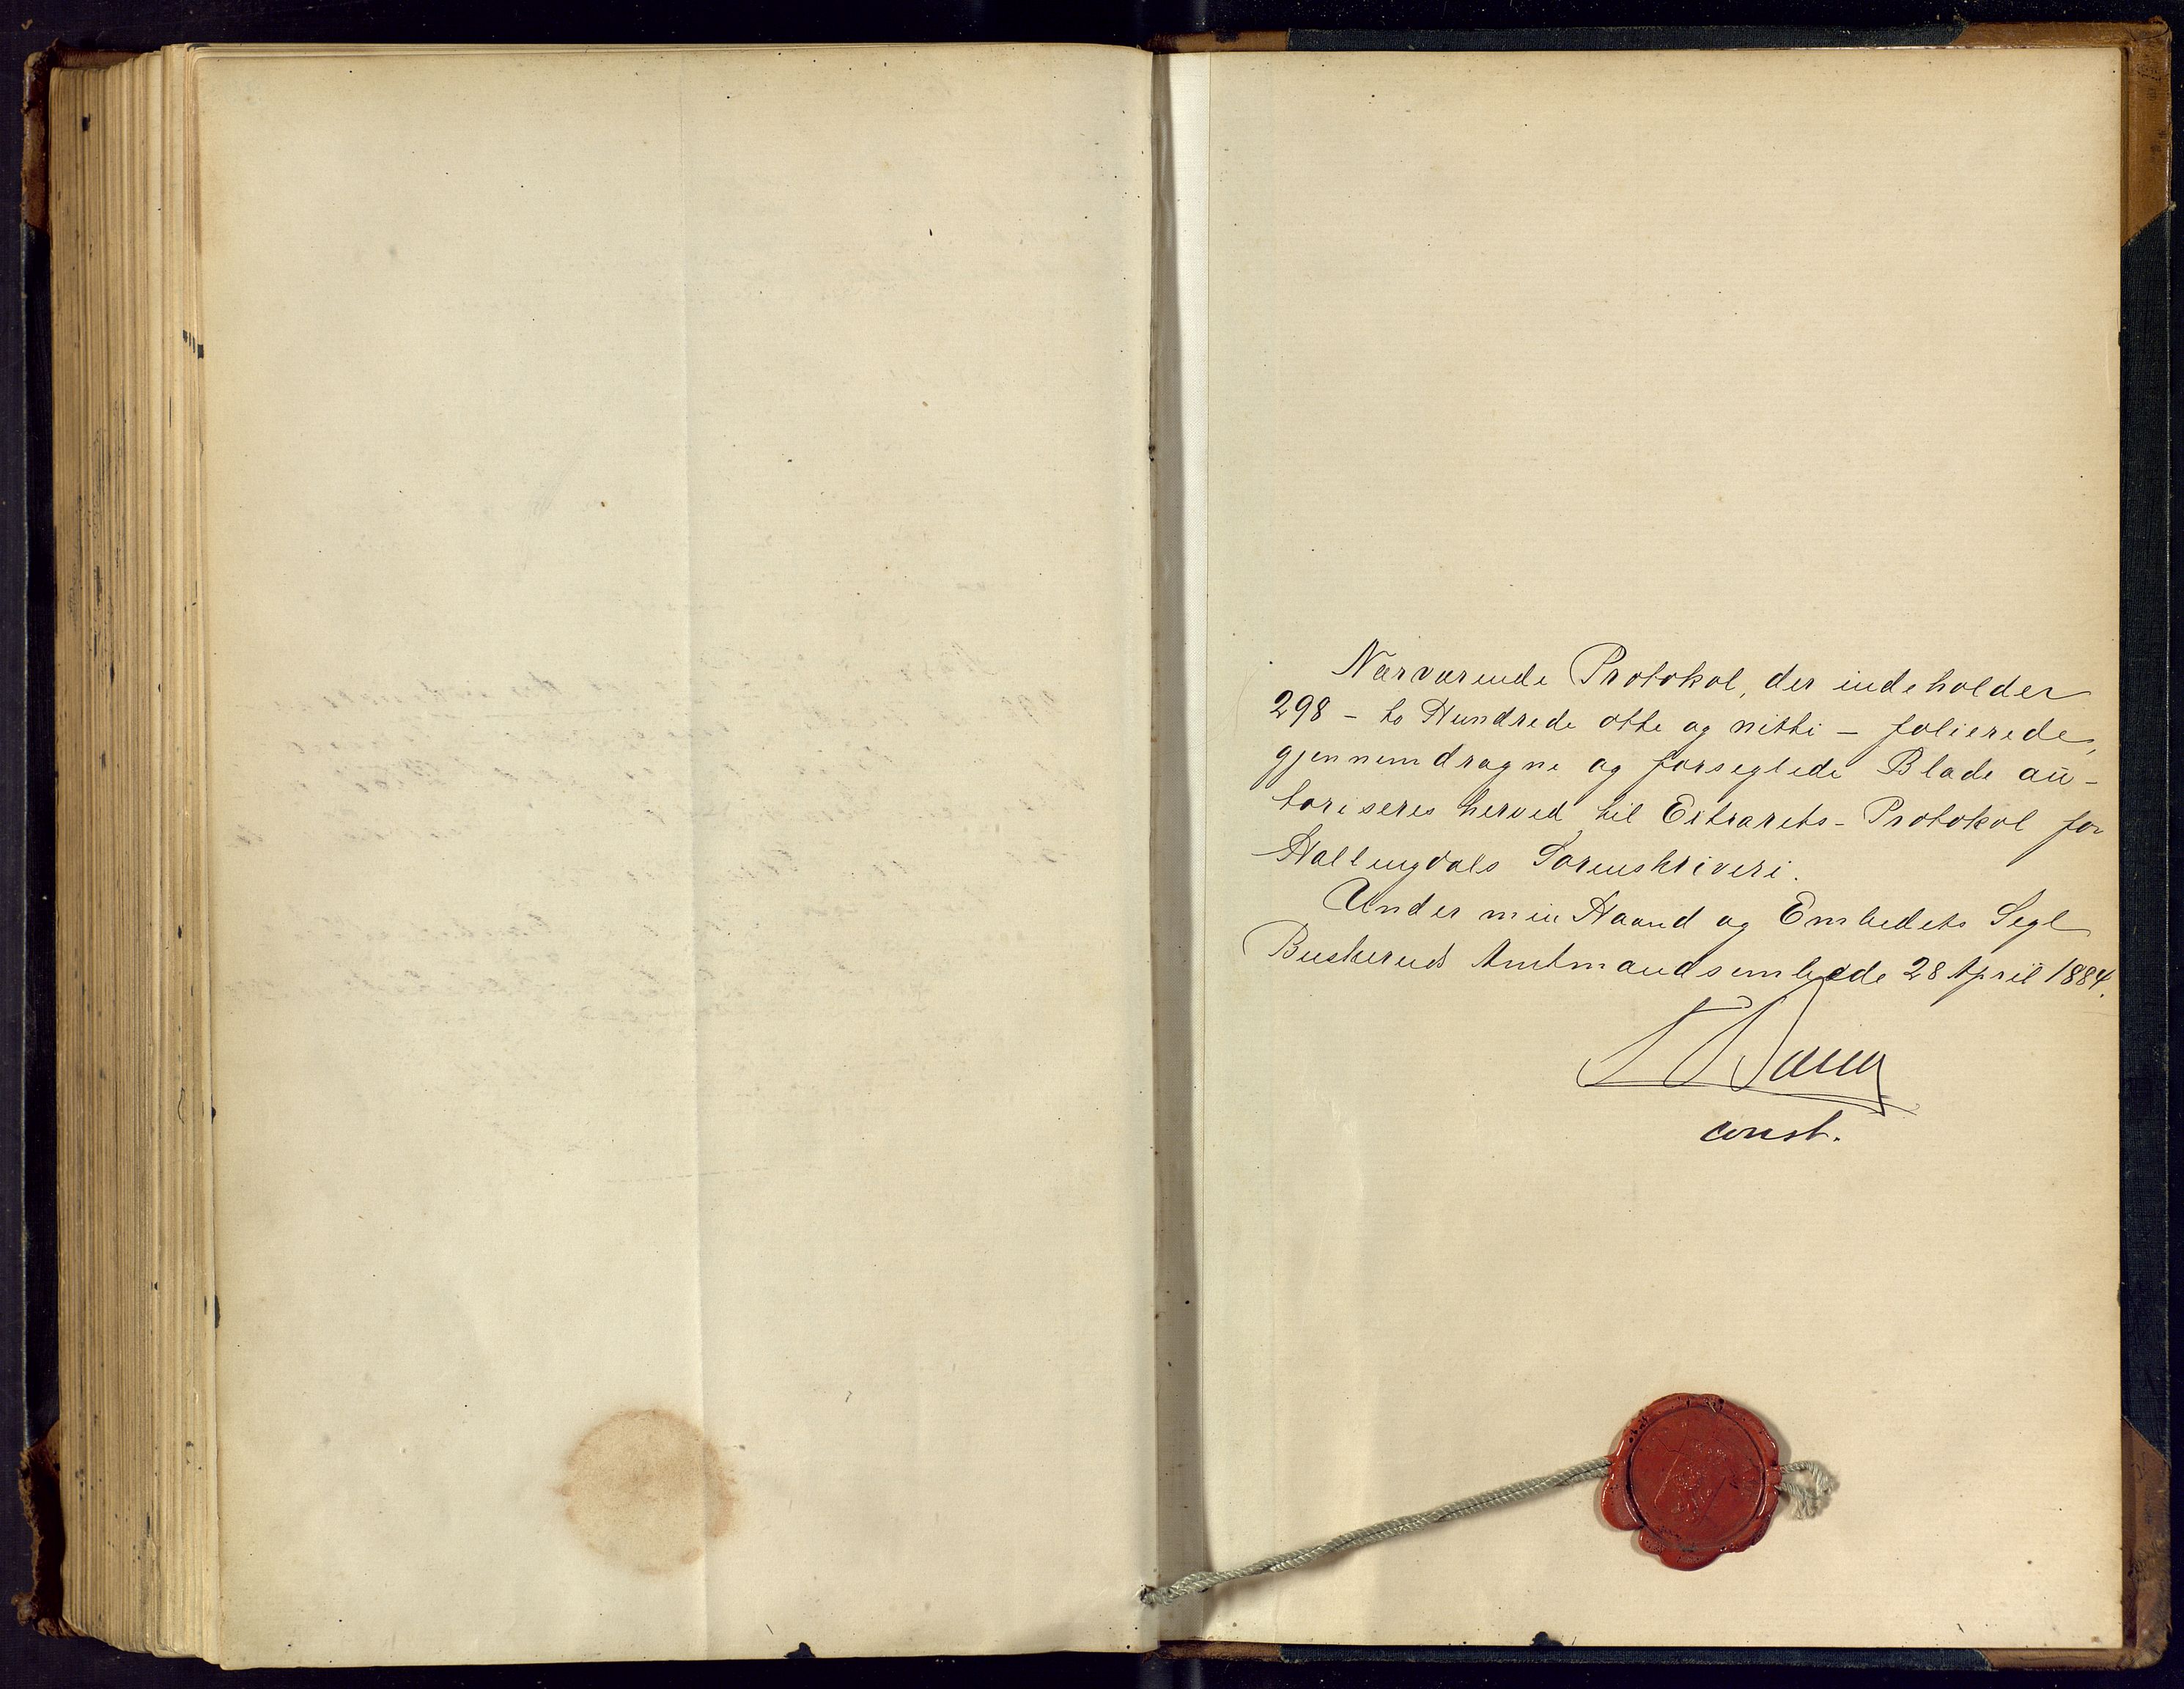 Nærværende Protokol, der indeholder
298 - to Hundrede otte og nitti - folierede,
gjennemdragne og forseglede Blade au-
toriseres herved til Extrarets-Protokol for
Hallingdals Sorenskriveri.
Under min Haand og Embedets Segl
Buskeruds Amtmandsembede 28 April 1884.
const.